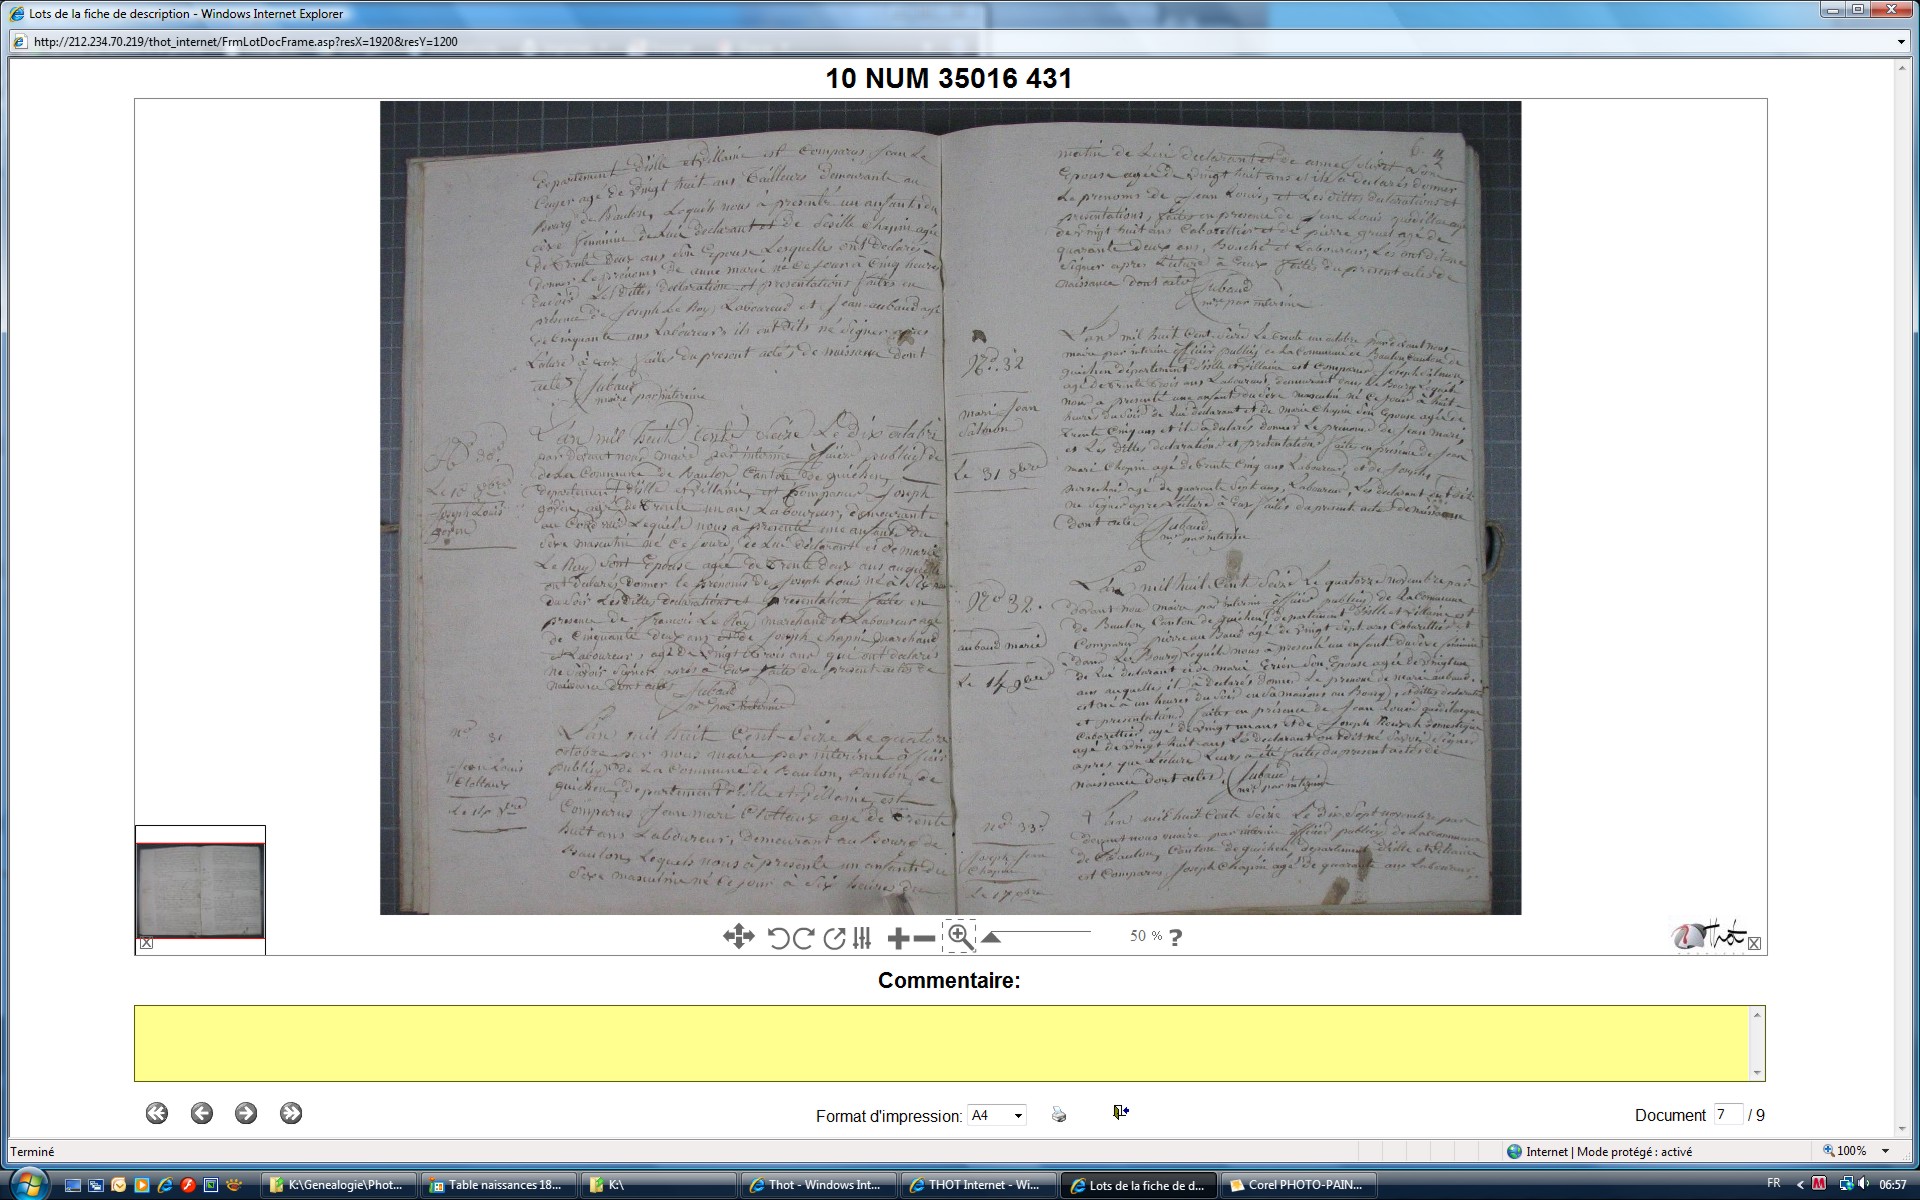 Lots de la fiche de description - Windows Internet Explorer
http://212.234.70.219/thot_internet/FrmLotDocFrame.asp?resX=1920&resY=1200
10 NUM 35016 431
Departement d'ille et villaine est Comparus Jean Le
agé de vingt huit ans Tailleurs demeurante au
Bourg de Baulon, Lequels nous à presenté un anfant du
sexe feminine de Lui declarant et de Sesille Chapin agé
de trente deux ans son Epouse Lesquelle ont declarés
donner Le prenoms de anne marie né ce jour à Cinq heures
du soir Les dittes declaration et presentations faites en
présence de Joseph Le Roy, Laboureud et Jean aubaud agé
de cinquante ans Laboureurs ils ont dits né Signer apres
Lature à eux faites du present actes de naissance dont
actes Jubaud
maire par interime
No 30
Le 10 8bre
Joseph Louis
L'an mil huit Cents Seize Le dix octobre
par devant nous maire par interime officier publiq de
de La Commune de Baulon Canton de guichen,
departement d'ille et villaine, est Comparus Joseph
agé de trente un ans Laboureur, demeurante
au Lequel nous à presenté une anfants du
Sexe masculin né ce jour, de Lui déclarant et de marie
Le Roy sont Epouse agée de trente deux ans auquelle
ont declarés donner le prenoms de Joseph Louis né à Six
du soir Les dittes declarations et presentation faites en
presence de francois Le Roy marchand et Laboureur agé
de Cinquante deux ans et de Joseph Chapin marchand
et Laboureur, agé de vingt trois ans qui ont declarés
ne savoir signer après à Eux faite du present actes de
naissance dont actes Jubaud
mre par interime
no 31
Jean Louis
Clottaux
Le 14 8bre
L'an mil huit Cent-Seize Le quatorze
octobre par nous maire par interime officier
publiq de La Commune de Baulon, Canton de
guichen, departement d'ille et villaine, est
Comparus Jean marie Clottaux agé de trente
huit ans Laboureur, demeurant au Bourg de
Baulon, Lequels nous à presenté un anfants du
Sexe masculine né ce jour à Six heures du
6
matin de Lui declarant et de anne son
Epouse agée de vingt huit ans et il à declarés donner
Le prenoms de Jean Louis, et Les dittes declarations et
presentations, faites en presence de Jean Louis
de vingt huit ans Cabarettier et de pierre gruel agé de
quarante deux ans, Bouché et Laboureur, Les ont dit ne
Signer apres Lecture à Eaux faites du present actes de
naissance dont acte Jubaud
mre par interime
No 32
marie Jean
Salmon
Le 31 8bre
L'an mil huit Cent Seize Le trente un octobre par devant nous
maire par interim officier publiq de La Commune de Baulon, Canton de
guichen departement d'ille et villaine est Comparus Joseph Salmon
agé de trente trois ans Laboureur, demeurant dans Le Bourg Lequel
nous a presenté une anfant du sexe masculin né ce jour à huit
heures du soir de Lui declarant et de marie Chapin son Epouse agée de
trente Cinq ans et il a declarés donner Le prenoms de Jean marie,
et Les dittes declarations et presentation faite en presence de Jean
marie Chapin agé de trente Cinq ans Laboureur, et de Joseph
agé de quarante Sept ans, Laboureur, Les declarant ont dit
ne Signer apres Lecture à Eux faites du present acte de naissance
dont acte Jubaud
mre par interime
No 32.
aubaud marie
Le 14 9bre
L'an mil huit Cent Seize Le quatorze novembre par
devant nous maire par interim officier publiq de La Commune
de Baulon, Canton de guichen, departement d'ille et villaine est
Comparu pierre au Baud agé de vingt Sept ans Cabarettier et
dans Le Bourg Lequel nous à presenté un enfant du sexe féminin
de Lui declarant et de marie son Epouse agée de vingt
ans auquelle il à declarés donner Le prenoms de marie aubaud.
est né à un heures du Soir en Sa maisons au Bourg, et dittes declaration
et presentations faites en présence de Jean Louis
Cabarettier agé de vingt un ans et de Joseph domestique
agé de vingt huit ans Les declarant ont dit ne Savoir Signer
apres que Lecture Leurs a été faites du present actes de
naissance dont actes. Jubaud
mre par interime
no 33
Joseph Jean
Chapin
Le 17 9bre
L'an mil huit Cent Seize Le dix Sept novembre par
devant nous maire par interim officier publiq de La Commune
de Baulon, Canton de guichen, departement d'ille et villaine
est Comparus Joseph Chapin agé de quarante ans Laboureur,
50 %
Thot
Commentaire:
Format d'impression: A4
Document 7 / 9
Terminé
Internet | Mode protégé : activé
100%
K:\Genealogie\Phot...
Table naissances 18...
K:\
Thot - Windows Int...
THOT Internet - Wi...
Lots de la fiche de d...
Corel PHOTO-PAIN...
FR
06:57